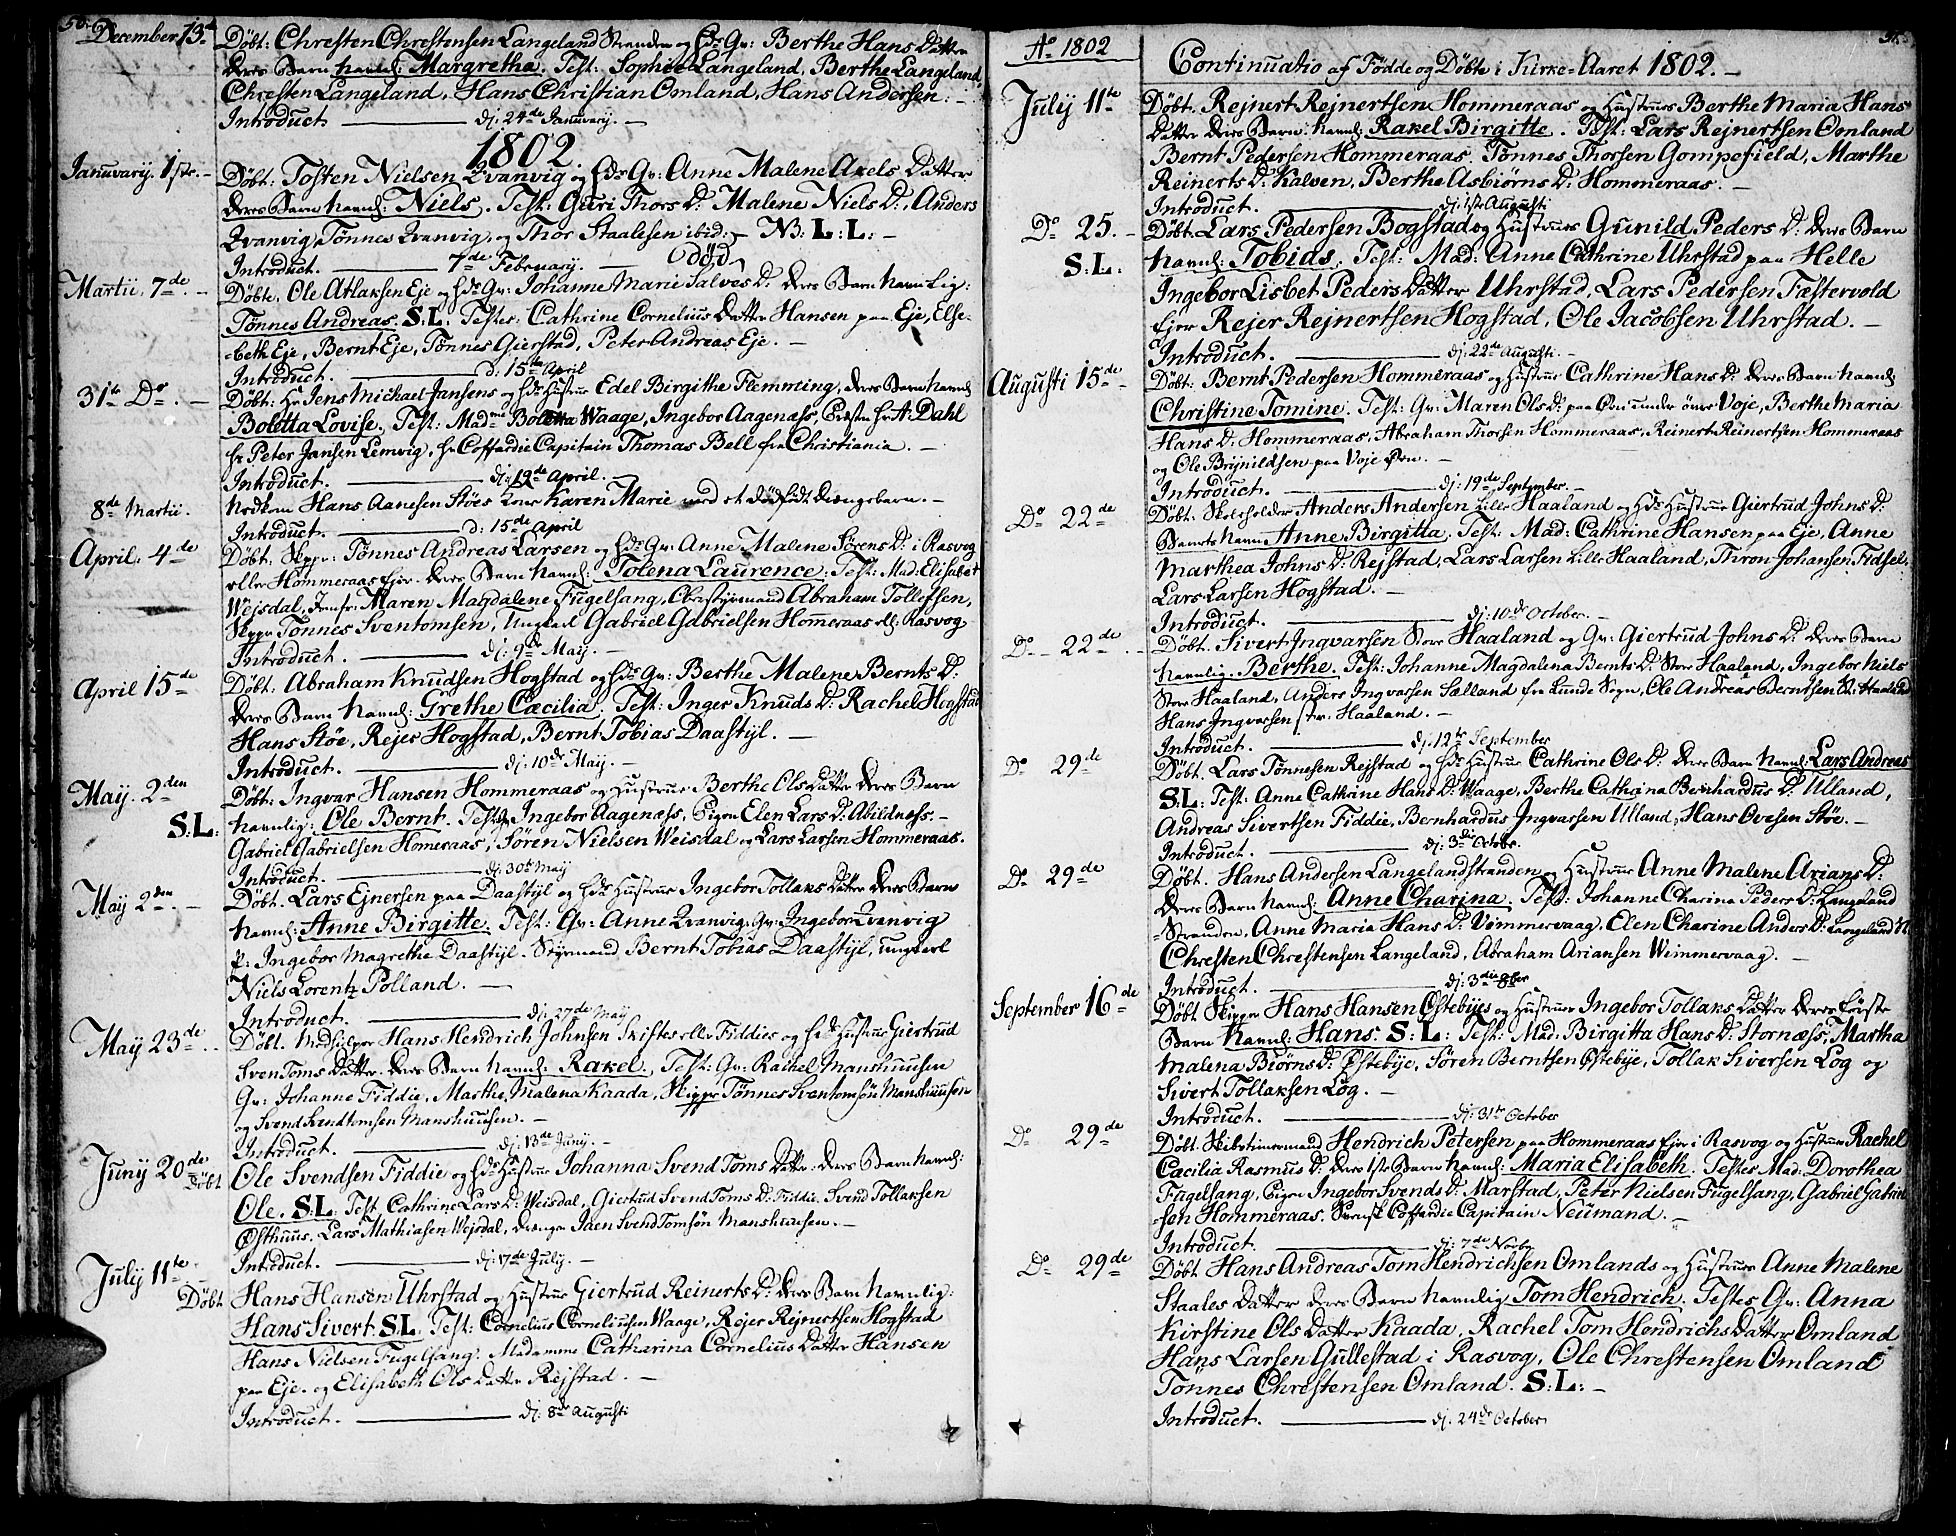 50.
December 13de Døbt: Chresten Chrestensen Langeland Stranden og Hds Qv: Berthe Hans Datter
deres Barn Navnl: Margretha. Test: Sophie Langeland, Berthe Langeland,
Chresten Langeland, Hans Christian Omland, Hans Andersen. -
Introduct. d: 24de Januarij. -
1802.
Januvarij. 1ste. - Døbt: Tosten Nielsen Qvanvig og Hds Qv: Anne Malene Axels Datter
deres Barn Navnl: Niels. Test: Guri Thors D: Malene Niels D:, Anders
Qvanvig, Tønnes Qvanvig, og Thor Staalesen ibid: - NB: L: L: -
Introduct. 7de February. - død
Martii. 7de. - Døbt. Ole Atlaksen Eje og Hds Qv: Johanne Marie Salves D: deres Barn Navnlig:
Tønnes Andreas. S: L: Testes. Cathrine Cornelius Datter Hansen paa Eje, Else-
-beth Eje, Bernt Eje, Tønnes Gierstad, Peter Andreas Eje. -
Introduct. d: 15de April
31te Do. - Døbt: Hr Jens Mickael Jansens og Hds Hustrue Edel Birgithe Flemming, deres Barn Navnl
Boletta Lovise. Test: Madme Boletta Waage, Ingebor Aagenæss, Hr A: Dahl
Hr Peter Jansen Lemvig, Hr Coffardie Capitain Thomas Bell fra Christiania. -
Introduct. d: 19de April. -
8de Martii. Nedkom Hans Aanesen Støes Kone Karen Marie med et dødfødt drengebarn. -
Introduct. d: 15de April
April. 4de Døbt. Skppr: Tønnes Andreas Larsen og Hds Qv: Anne Malene Sørens D: i Rasvog
eller Hommeraas Ejer. deres Barn Navnl: Tolena Laurence. Test: Mad: Elisabet
Wejsdal, Jomfr: Maren Magdalene Fugelsang, Abraham Tollefsen,
Skppr Tønnes Sventomsen, Ungkarl Gabriel Gabrielsen Homeraas ell: Rasvog
Introduct. d: 9de May. -
April 15de Døbt: Abraham Knudsen Hogstad og Hds Qv: Berthe Malene Bernts D:
deres Barn Navnl: Grethe Cæcilia. Test: Inger Knuds D: Rachel Hogstad
Hans Støe, Rejer Hogstad, Bernt Tobias Daastijl. -
Introduct. d: 10de May. -
May. 2den Døbt: Ingvar Hansen Hommeraas og Hustrue Berthe Ols datter deres Barn
S: L: Navnlig: Ole Bernt. Test: Ingebor Aagenæss, Pigen Elen Lars D: Abildnæss. -
Gabriel Gabrielsen Homeraas, Søren Nielsen Weisdal og Lars Larsen Hommeraas.
Introduct. d: 30te May
May 2den. - Døbt. Lars Ejversen paa Daastijl og Hds Hustrue Ingebor Tollaks datter deres Barn
Navnl: Anne Birgitte. Test: Qv: Anne Qvanvig, Qv: Ingebor Qvanvig
P: Ingebor Magrethe Daastijl. Styrmand Bernt Tobias Daastijl, ungkarl
Niels Lorentz Polland. -
Introduct. d: 27de May
May 23de. - Døbt. Hans Hendrich Johnsen Skiftes eller Fiddies og Hds Hustrue Giertrud
Sven Toms datter. deres Barn Navnl: Rakel. Test: Qv: Rachel Manshuusen
Qv: Johanne Fiddie, Marthe Malena Kaada, Skippr Tønnes Sventomsøn Manshuusen
og Svend Svendtomsen Manshuusen. -
Introduct. d: 13de Junij. -
Junij 20de Døbt Ole Svendsen Fiddie og Hds Hustrue Johanna Svend Toms datter. deres Barn Navnl:
Ole. S: L: Test Cathrine Lars D: Weisdal, Giertrud Svend Toms D: Fiddie. Svend Tollaksen
Østhuus. Lars Mathiasen Wejsdal, drenge Jaen Svend Tomsøn Manshuusen. -
Introduct. d: 17de Julij. -
Julij 11te. - Døbt Hans Hansen Uhrstad og Hustrue Giertrud Reinerts D: deres Barn Navnlig:
Hans Sivert. S: L: Test: Cornelius Corneliusen Waage, Rejer Rejnertsen Hogstad
Hans Nielsen Fugelsang. Madamme Catharina Cornelius datter Hansen
paa Eje. og Elisabeth Ols datter Rejstad. -
Introduct. d: 8de Augusti
Ao 1802
Continuatio af Fødde og Døbte i Kirke-Aaret 1802. -
Julij 11te Døbt. Rejnert Rejnertsen Hommeraas og Hustrues Berthe Maria Hans
datter deres Barn: Navnl: Rakel Birgitte. Test: Lars Rejnertsen Omland
Bernt Pedersen Hommeraas. Tønnes Thorsen Gompefield, Marthe
Reinerts D: Kalven, Berthe Asbiørns D: Hommeraas. -
Introduct. d: 1ste Augusti
Do 25. - Døbt. Lars Pedersen Bogstad og Hustrues Gunild Peders D: deres Barn
S: L: Navnl: Tobias. Test: Mad: Anne Cathrine Uhrstad paa Helle
Ingebor Lisbet Peders Datter Uhrstad, Lars Pedersen Fæstervold
Ejer Rejer Rejnertsen Hogstad, Ole Jacobsen Uhrstad. -
Introduct. d: 22de Augusti. -
Augusti 15de - Døbt: Bernt Pedersen Hommeraas og Hustrue Cathrine Hans D: deres Barn Navnl
Christine Tomine. Test: Qv: Maren Ols D: paa Øen under över Voje, Berthe Maria
Hans D: Hommeraas, Abraham Thorsen Hommeraas, Reinert Reinertsen Hommeraas
og Ole Brijnildsen paa Voje Øen. -
Introduct. d: 19de September. -
Do 22de Døbt: Skoleholder Anders Andersen Lille Haaland og Hds Hustrue Giertrud Johns D:
Barnets Navn Anne Birgitta. Test: Mad: Cathrine Hansen paa Eje, Anne
Marthea Johns D: Rejstad, Lars Larsen Lille Haaland, Tiron Johansen Fidsel.
Lars Larsen Hogstad. -
Introduct. d: 10de October. -
Do - 22de. - Døbt: Sivert Ingvarsen Store Haaland og Qv: Giertrud Johns D: deres Barn
Navnlig. Berthe. Test: Johanne Magdalena Bernts D: Store Haaland, Ingebor Niels
Store Haaland, Anders Ingvarsen Sælland fra Lunde Sogn, Ole Andreas Berntsen St: Haaland
Hans Ingvarsen str. Haaland. -
Introduct. d: 12te September
Do 29de Døbt. Lars Tønnesen Rejstad og Hds Hustrue Cathrine Ols D: deres Barn Navnl: Lars Andreas
S: L: Test: Anne Cathrine Hans D: Waage, Berthe Cathrina Bernhardus D: Ulland,
Andreas Sivertsen Fiddie, Bernhardus Ingvarsen Ulland, Hans Ovesen Støe. -
Introduct. d: 3die Octobr.
Do 29de Døbt. Hans Andersen Langelandstranden og Hustrue Anne Malene Arians D:
deres Barn Navnl: Anne Charina. Test: Johanne Charina Peders D: Langeland
-Stranden, Anne Maria Hans D: Vimmervaag, Elen Charine Anders D: Langeland
Chresten Chrestensen Langeland, Abraham Ariansen Wimmervaag. -
Introduct. d: 3die 8ber
September 16de Døbt Skippr Hans Hansen Østebijes og Hustrue Ingebor Tollaks datter deres første
Barn Navnl: Hans. S: L: Test: Mad. Birgitta Hans D: Stornæss, Martha
Malena Biørns D: Østebije, Søren Berntsen Østebije, Tollak Siversen Log og
Sivert Tollaksen Log. -
Introduct. d: 31te October
Do 29de Døbt Skibstimermand Hendrich Petersen paa Hommeraas Ejer i Rasvog og Hustrue Rachel
Cæcilia Rasmus D: deres 1ste Barn Navnl: Maria Elisabeth. Testes Mad: Dorothea
Fugelsang, Pigen Ingebor Svends D: Marstad, Peter Nielsen Fugelsang, Gabriel Gabriel
-sen Hommeraas. Svensk Coffardie Capitain Neümand. -
Introduct. d: 7de Novbr
Do 29de Døbt Hans Andreas Tom Hendrichsen Omlands og Hustrues Anne Malene
Staales datter deres Barn Navnlig Tom Hendrich. Testes Qv: Anna
Kirstine Ols datter Kaada, Rachel Tom Hendrichs datter Omland
Hans Larsen Gullestad i Rasvog, Ole Chrestensen Omland
Tønnes Chrestensen Omland. S: L: -
Introduct. d: 24de October